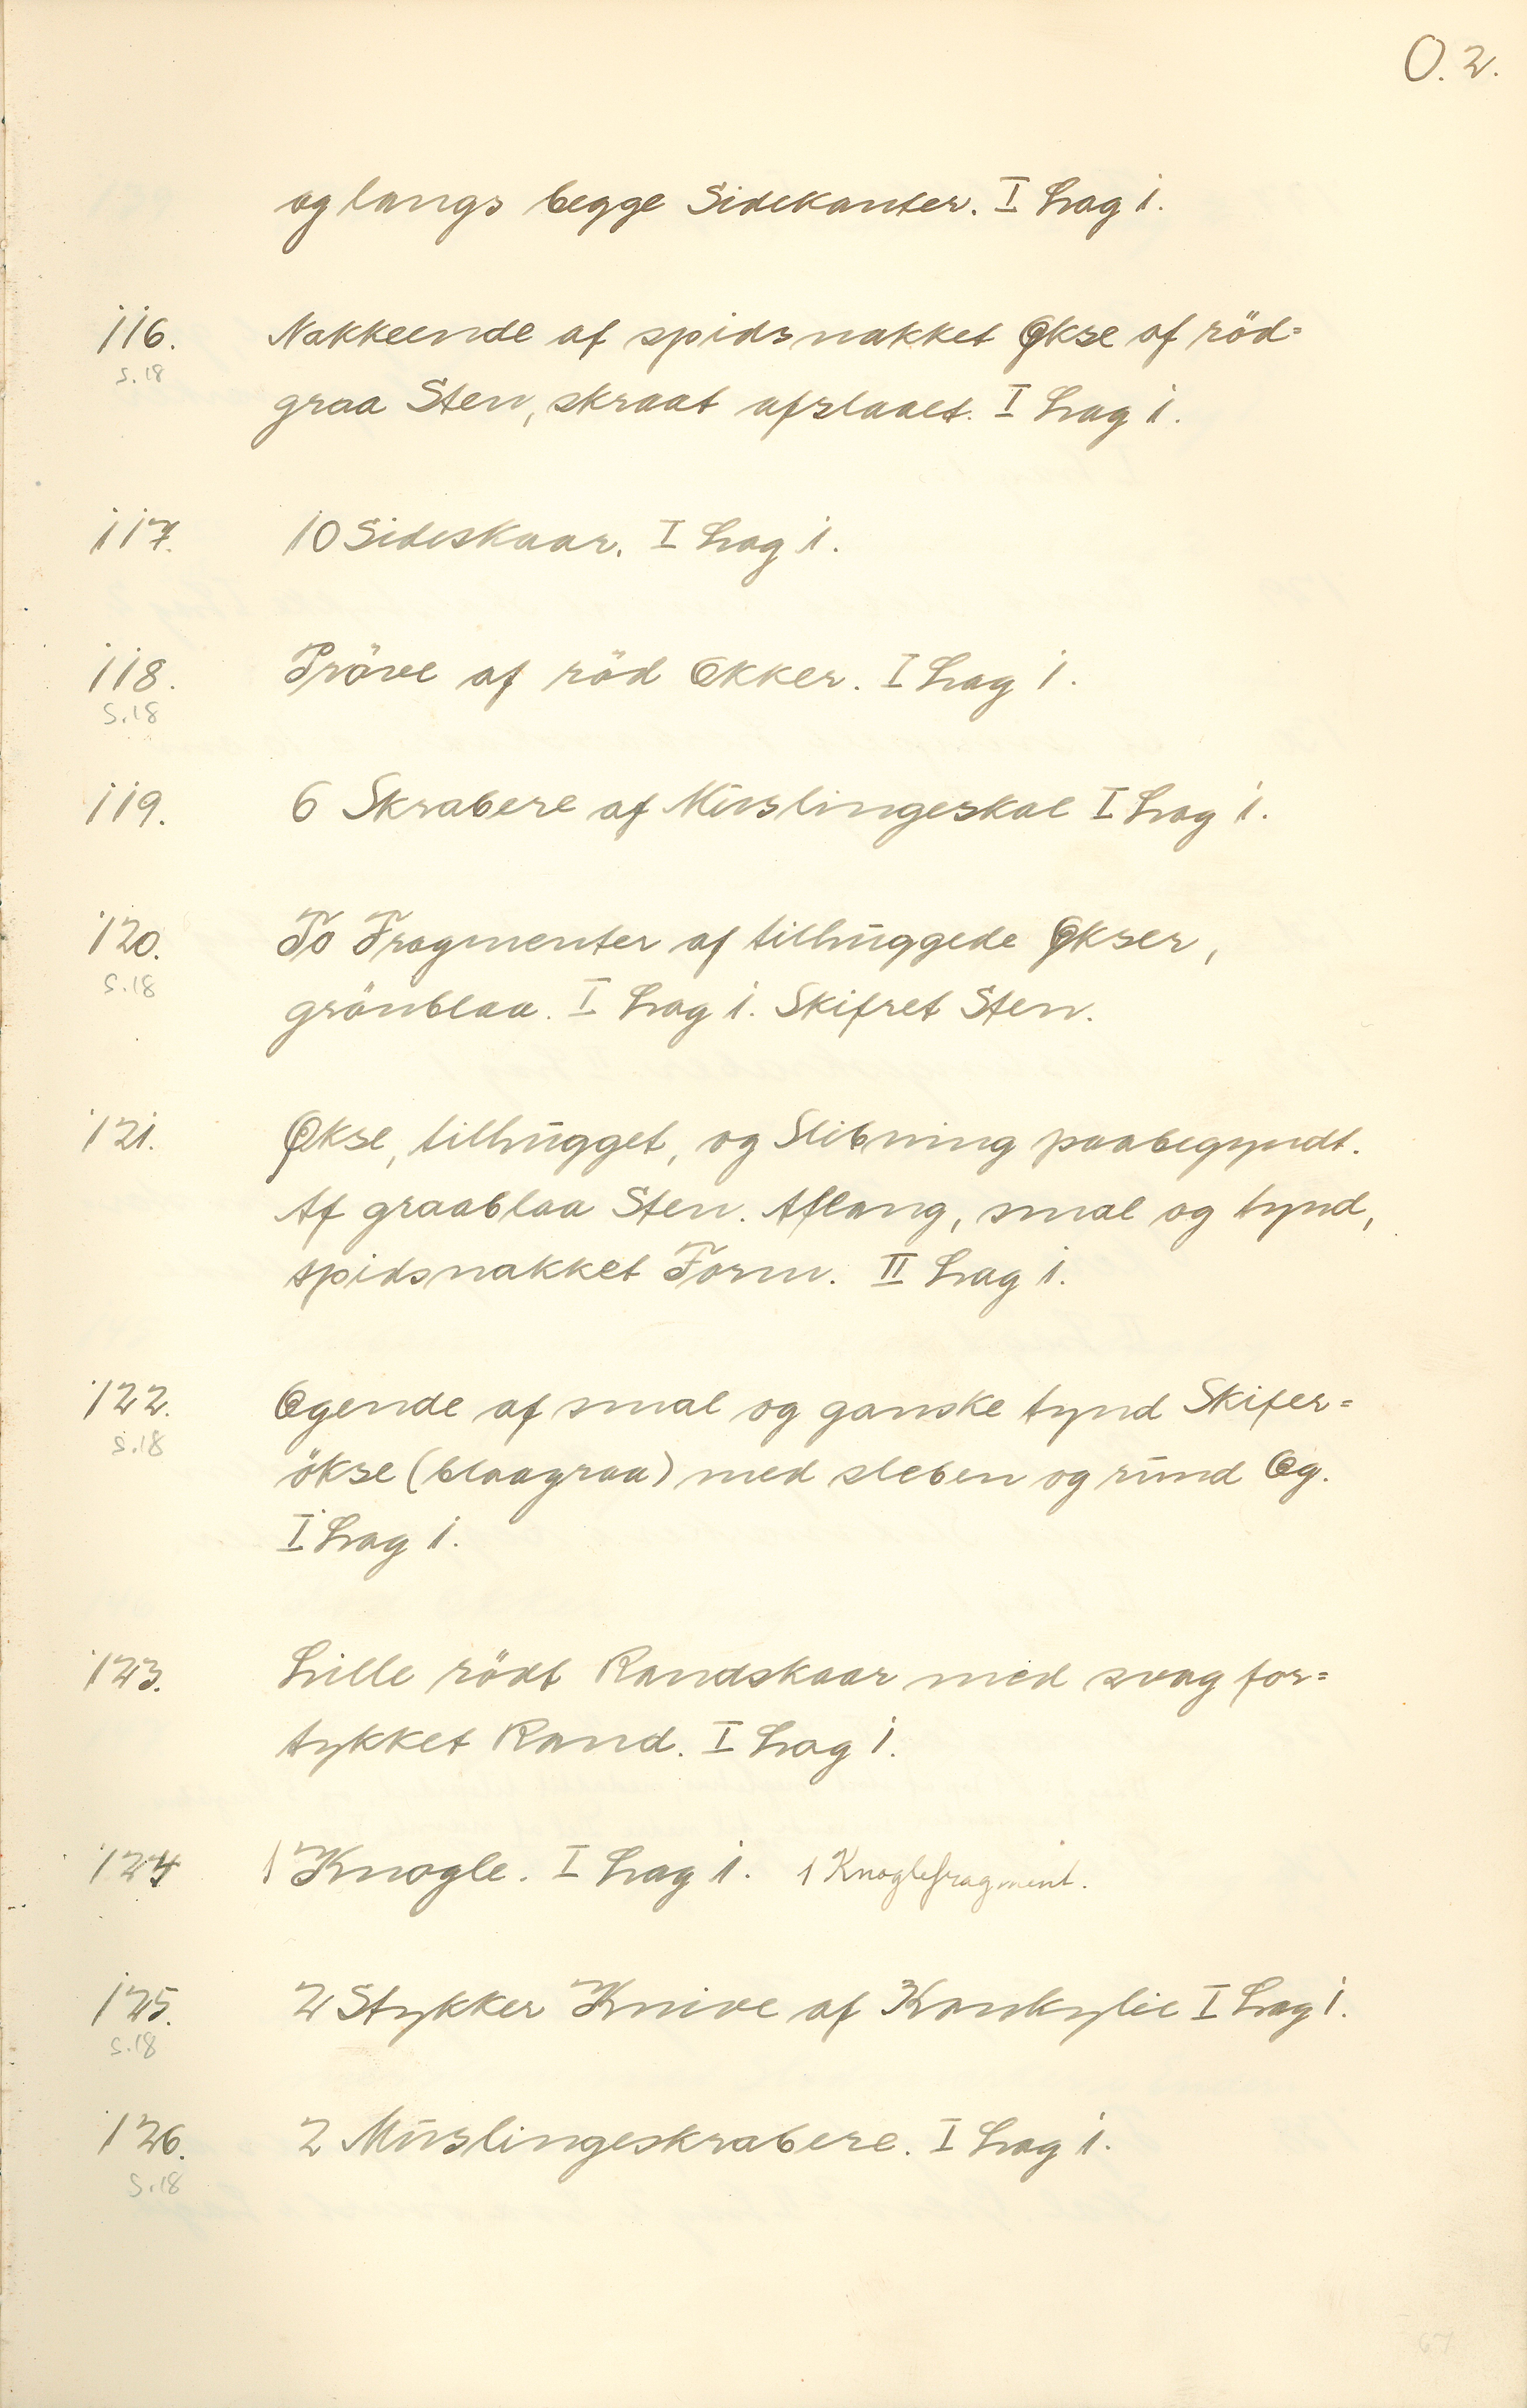 O. 2.
og langs begge Sidekanter. I Lag 1.
116. Nakkeende af spidsnakket Økse af röd=
S. 18
graa Sten, skraat afslaaet. I Lag 1.
117. 10 Sideskaar. I Lag 1.
118. Pröve af röd Okker. I Lag 1.
S. 18
119. 6 Skrabere af Muslingeskal I Lag 1.
120. To Fragmenter af tilhuggede Økser,
S. 18
grönblaa. I Lag 1. Skifret Sten.
121. Økse, tilhugget, og Slibning paabegyndt.
Af graablaa Sten. Aflang, smal og tynd,
spidsnakket Form. II Lag 1.
122. Egende af smal og ganske tynd Skifer=
S. 18
ökse (blaagraa) med sleben og rund Eg.
I Lag 1.
123. Lille rödt Randskaar med svag for=
tykket Rand. I Lag 1.
124 1 Knogle. I Lag 1. 1 Knoglefragment.
125. 2 Stykker Knive af Konkylie I Lag 1.
S. 18
126. 2 Muslingeskrabere. I Lag 1.
S. 18
67